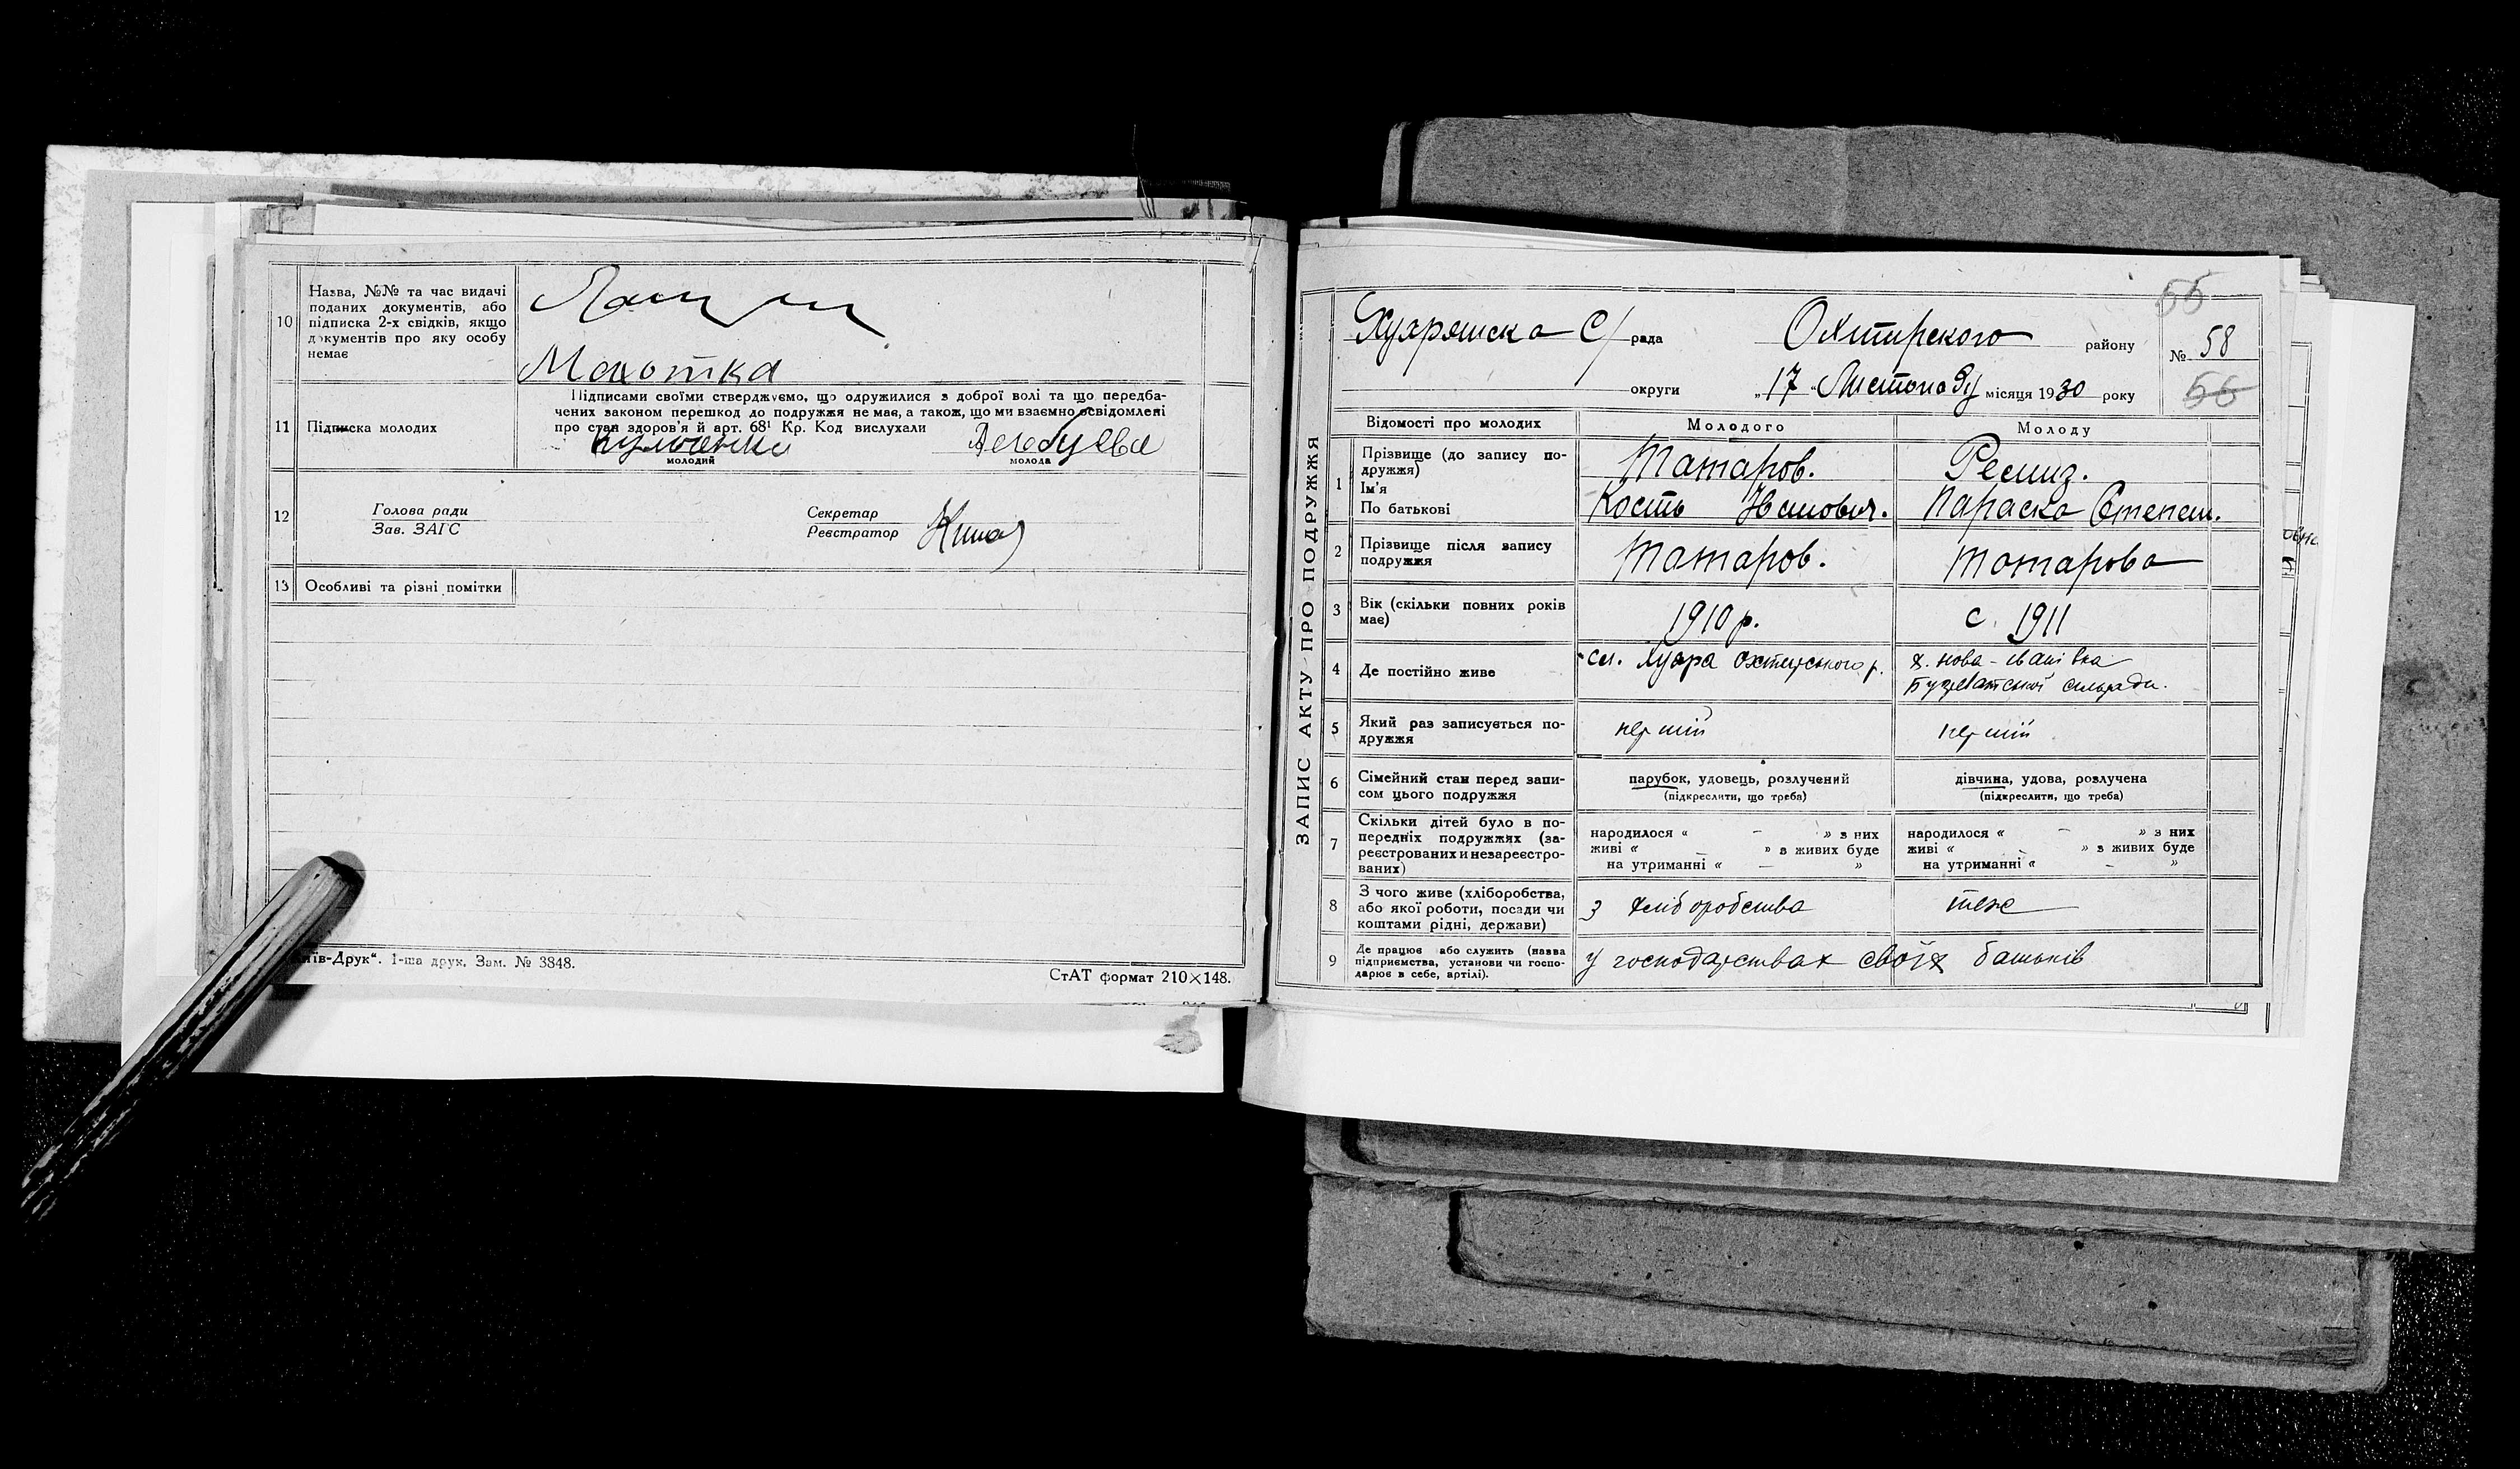 10
Назва, №№ та час видачі
поданих документів, або
підписка 2-х свідків, якщо
документів про яку особу
немає
Махотка
11
Підписка молодих
Підписами своїми стверджуємо, що одружилися з доброї волі та що передба-
чених законом перешкод до подружжя не має, а також, що ми взаємно освідомлені
про стан здоров'я й арт. 68¹ Кр. Код вислухали
молодий
молода
12
Голова ради
Зав. ЗАГС
Секретар
Реєстратор
13
Особливі та різні помітки
-Друк“. 1-ша друк. Зам. № 3848.
СтАТ формат 210×148.
ЗАПИС АКТУ ПРО ПОДРУЖЖЯ
55
С/ рада Охтирского району № 58
округи „17“ Листопаду місяця 1930 року
56
Відомості про молодих
Молодого
Молоду
1
Прізвище (до запису по-
дружжя)
Ім'я
По батькові
Татаров.
Кость Іванович.
Ремиз.
Параска Степан.
2
Прізвище після запису
подружжя
Татаров.
Татарова
3
Вік (скільки повних років
має)
1910 р.
с. 1911
4
Де постійно живе
сл. Хухра Охтирського р.
х. Нова-Іванівка
сильради.
5
Який раз записується по-
дружжя
перший
перший
6
Сімейний стан перед запи-
сом цього подружжя
парубок, удовець, розлучений
(підкреслити, що треба)
дівчина, удова, розлучена
(підкреслити, що треба)
7
Скільки дітей було в по-
передніх подружжях (за-
реєстрованих и незареєстро-
ваних)
народилося « – » з них
живі « – » з живих буде
на утриманні « – »
народилося « – » з них
живі « – » з живих буде
на утриманні « – »
8
З чого живе (хліборобства,
або якої роботи, посади чи
коштами рідні, держави)
з хліборобства
теж
9
Де працює або служить (назва
підприємства, установи чи госпо-
дарює в себе, артілі).
у господарствах своїх батьків